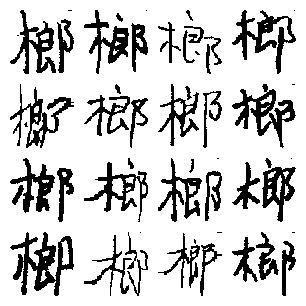 榔榔榔榔
榔榔榔榔
榔榔榔榔
榔榔榔榔